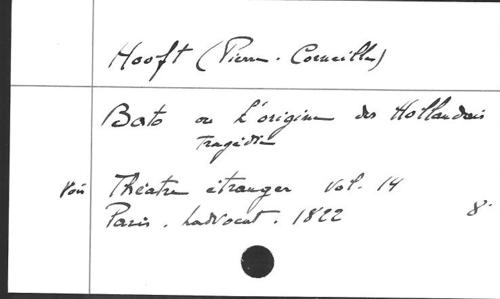 Hooft (Pierre-Corneille)
Bato ou L'origine des Hollandais
Tragédie
Voir Théatre étranger Vol. 14
Paris. Ladvocat. 1822 8°